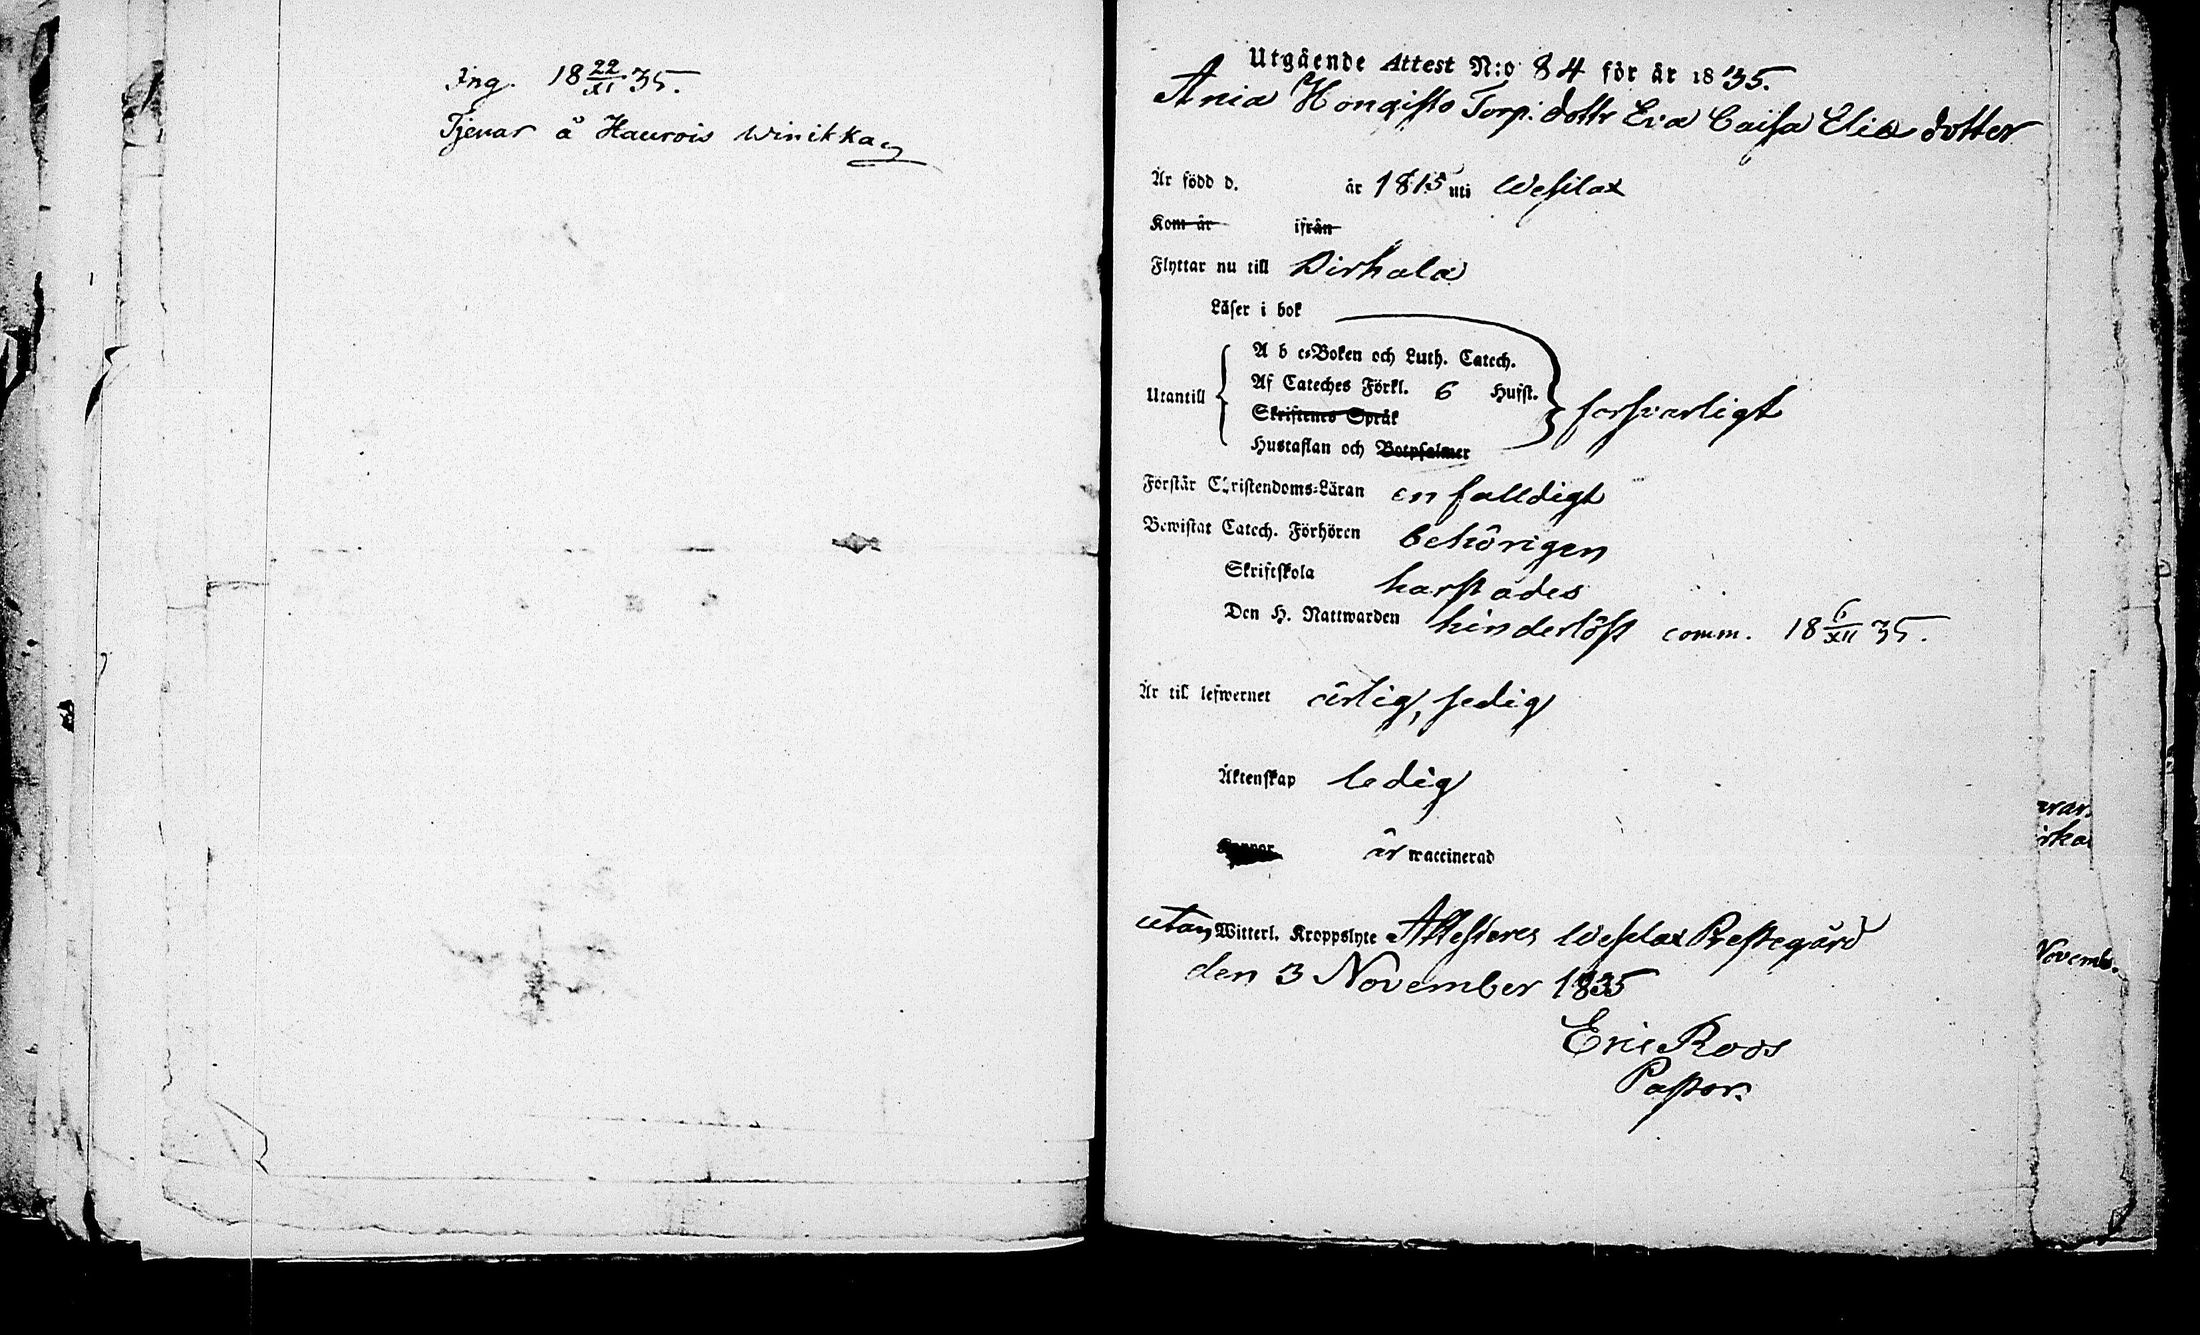 Ing. 18 22/XI 35.
Tjenar å Haurois Winikka
Utgående Attest N:o 84 för år 1835.
Ania Hongisto Torp. dottr Eva Caisa Elias dotter
Är född d. år 1815 uti Wesilax
Kom år ifrån
Flyttar nu till Birkala
Läser i bok
Utantill
A b c-Boken och Luth. Catech.
Af Cateches Förkl. 6 Hufst.
Skriftenes Språk
Hustaflan och Botpsalmer
forsvarligt
Förstår Christendoms-Läran enfalldigt
Bewistat Catech. Förhören behörigen
Skriftskola harstädes
Den H. Nattwarden hinderlöst comm. 18 6/XII 35.
Är till lefwernet ärlig, sedig
Äktenskap ledig
är waccinerad
utan Witterl. Kroppslyte Attesteres Wesilax Prestegård
den 3 November 1835
Eric Roos
Pastor.
Novemb.